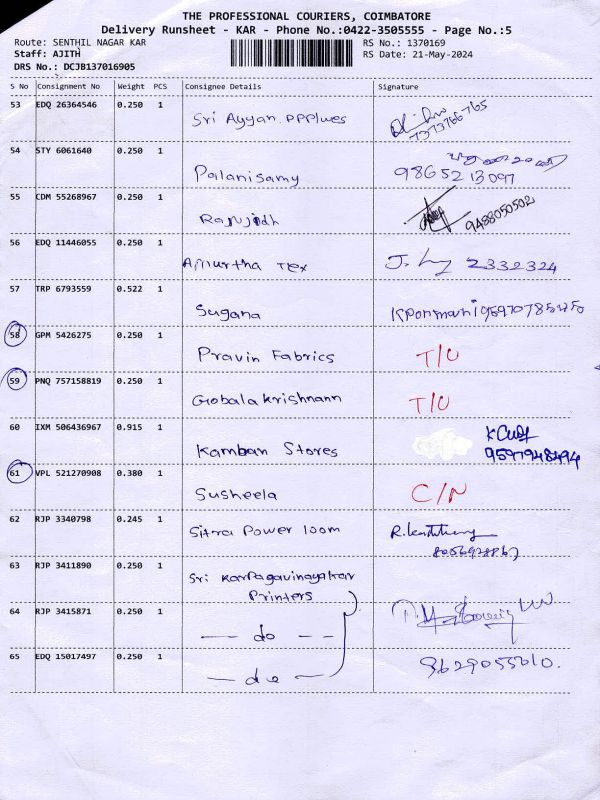 THE PROFESSIONAL COURIERS, COIMBATORE
Delivery Runsheet - KAR - Phone No.:0422-3505555 - Page No.:5
Route: SENTHIL NAGAR KAR RS No.: 1370169
Staff: AJITH RS Date: 21-May-2024
DRS No.: DCJB137016905
S No Consignment No Weight PCS Consignee Details Signature
53 EDQ 26364546 0.250 1
Sri Ayyan 7373766765
54 STY 6061640 0.250 1
Palanisamy 9865213097
55 CDM 55268967 0.250 1
Ranjidh 9488050502
56 EDQ 11446055 0.250 1
Amurtha Tex 2332324
57 TRP 6793559 0.522 1
Sugana KPonmani
58 GPM 5426275 0.250 1
Pravin Fabrics T/U
59 PNQ 757158819 0.250 1
Gobalakrishnann T/U
60 IXM 506436967 0.915 1
Kamban Stores 9597948494
61 VPL 521270908 0.380 1
Susheela C/N
62 RJP 3340798 0.245 1
Sitra Power loom
63 RJP 3411890 0.250 1
Sri Karpagavinayakar
Printers
64 RJP 3415871 0.250 1
— do — —
65 EDQ 15017497 0.250 1
— do — 9629055610.